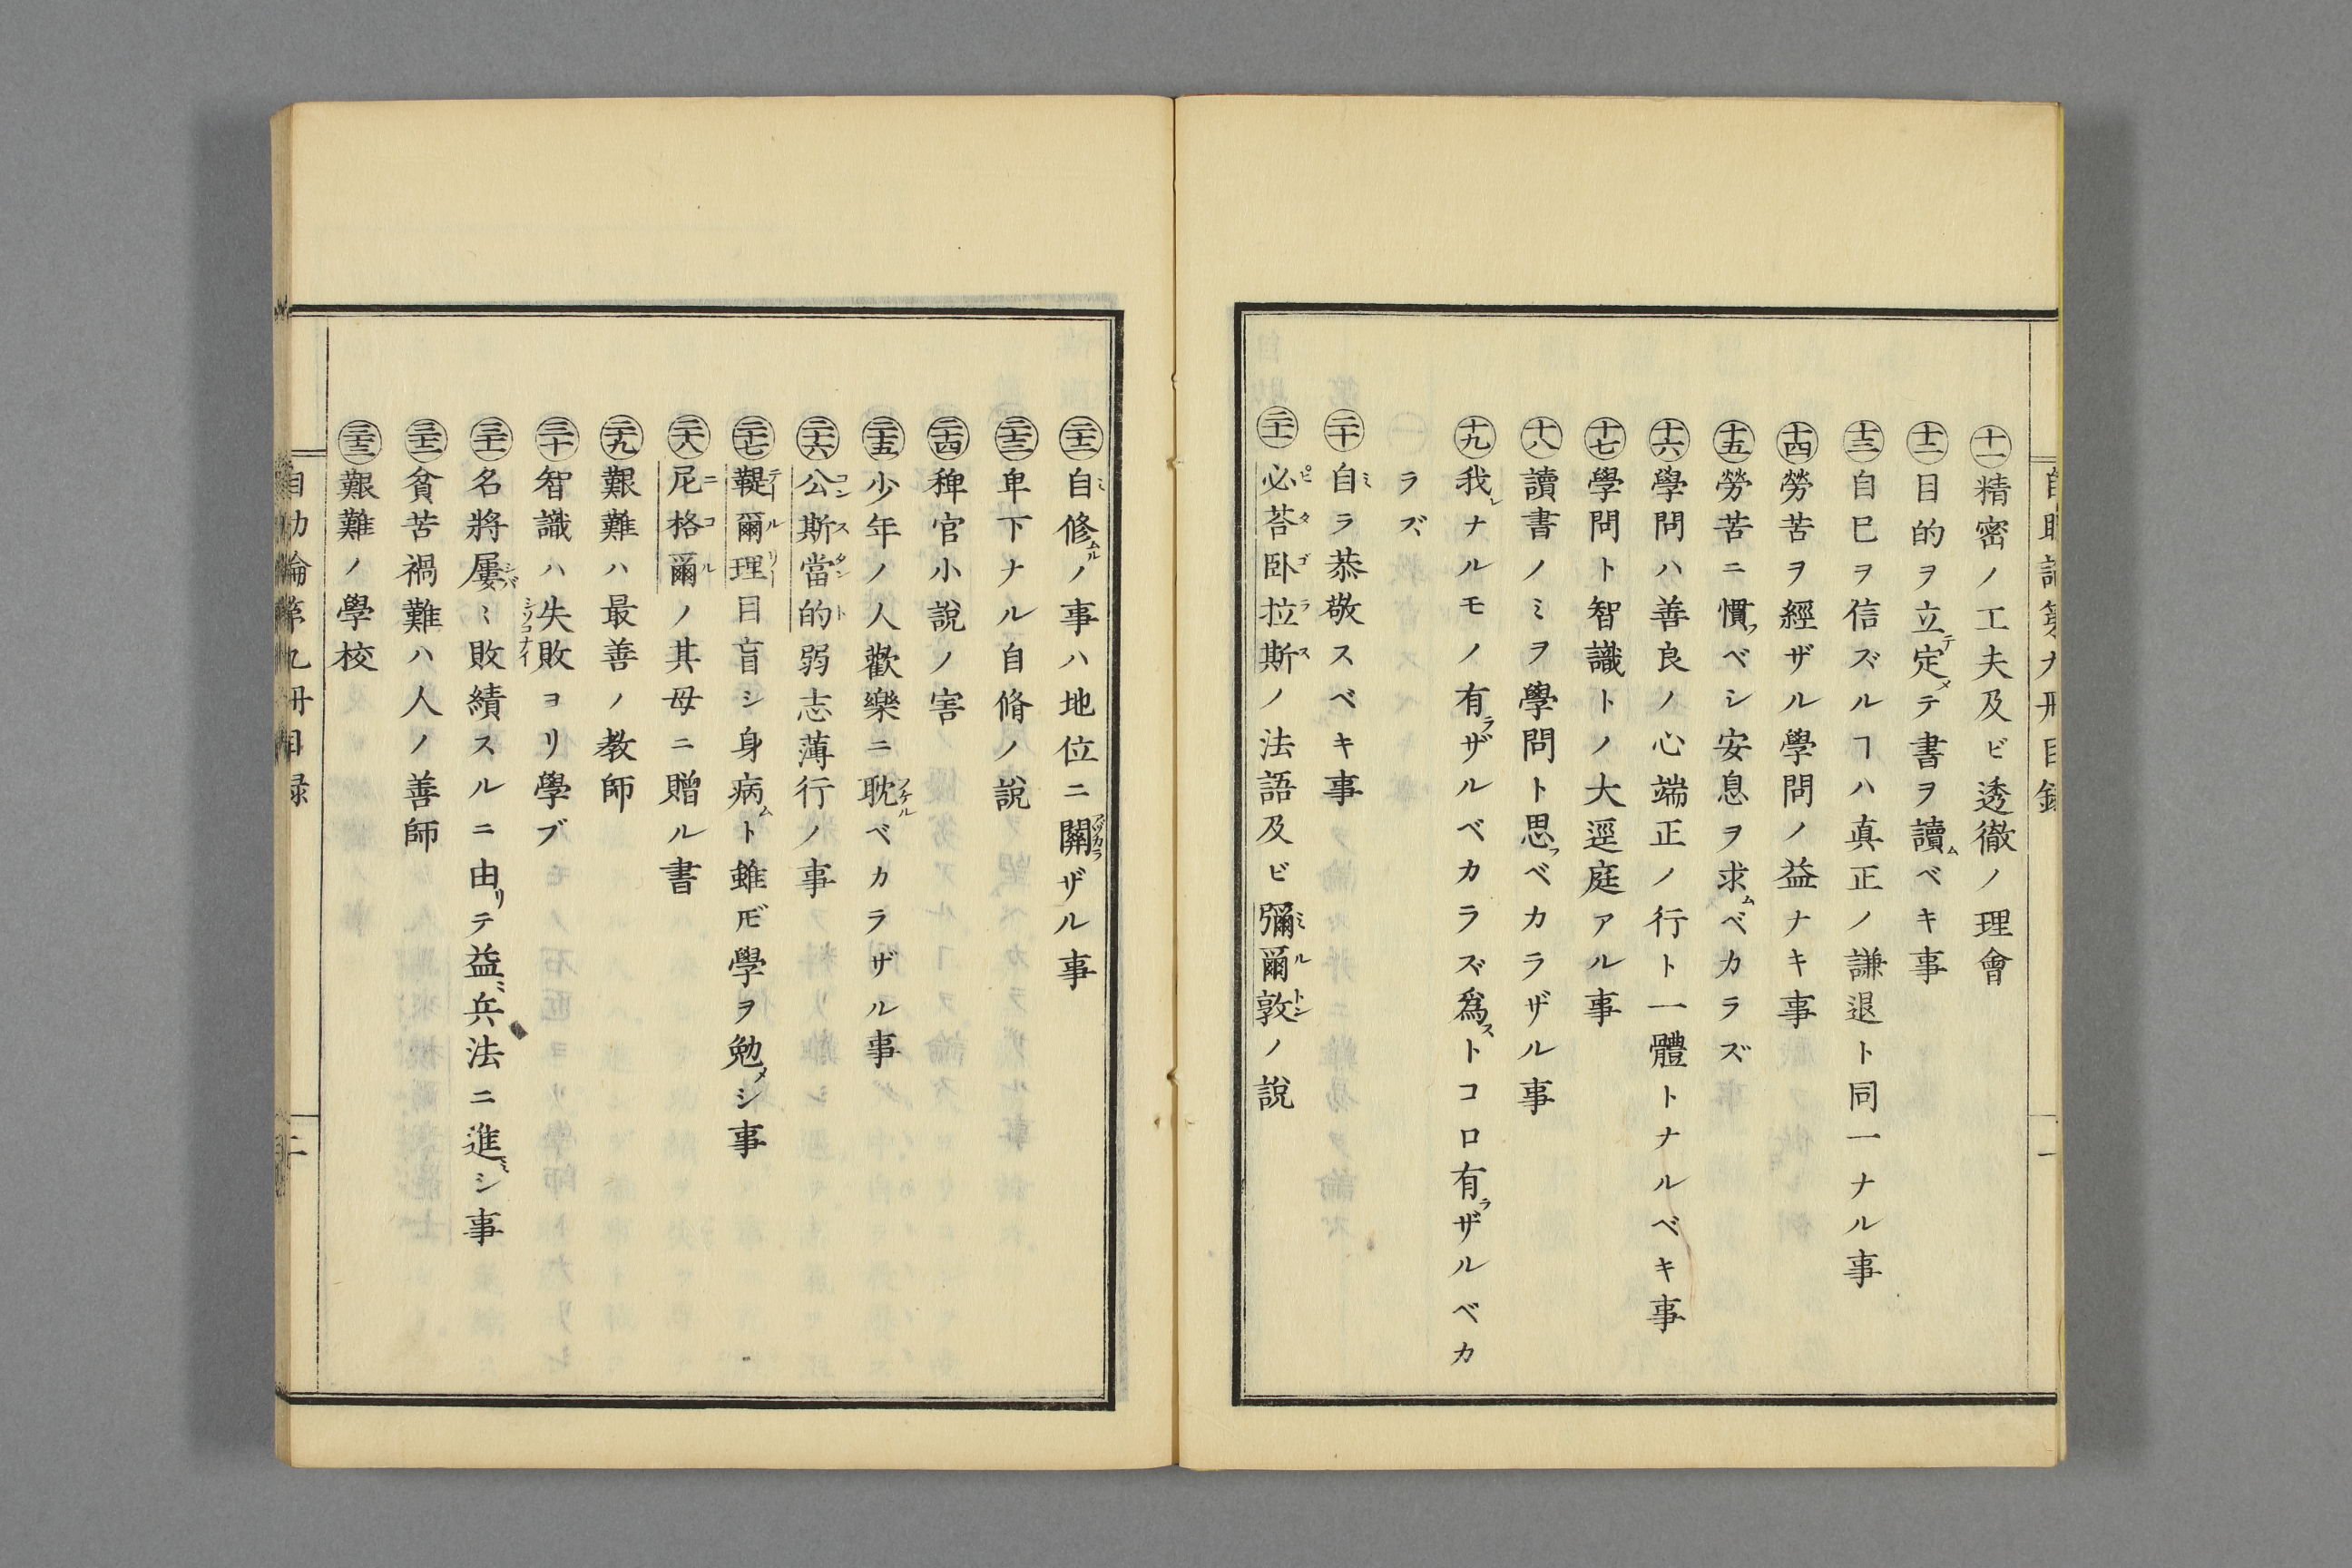 自助論第九冊目録
一
十一 精密ノ工夫及ビ透徹ノ理會
十二 目的ヲ立テ定メテ書ヲ讀ムベキ事
十三 自己ヲ信ズルヿハ真正ノ謙退ト同一ナル事
十四 勞苦ヲ經ザル學問ノ益ナキ事
十五 勞苦ニ慣フベシ安息ヲ求ムベカラズ
十六 學問ハ善良ノ心端正ノ行ト一體トナルベキ事
十七 學問ト智識トノ大逕庭アル事
十八 讀書ノミヲ學問ト思フベカラザル事
十九 我レナルモノノ有ラザルベカラズ爲ストコロ有ラザルベカ
ラズ
二十 自ミラ恭敬スベキ事
二十一 必荅臥拉斯ピタゴラスノ法語及ビ彌爾敦ミルトンノ說
二十二 自ミ修ムルノ事ハ地位ニ關アヅカラザル事
二十三 卑下ナル自脩ノ說
二十四 稗官小說ノ害
二十五 少年ノ人歡樂ニ耽フケルベカラザル事
二十六 公斯當的コンスタント弱志薄行ノ事
二十七 鞮爾理テールリー目盲シ身病ムト雖𪜈學ヲ勉メシ事
二十八 尼格爾ニコルノ其母ニ贈ル書
二十九 艱難ハ最善ノ教師
三十 智識ハ失敗シソコナイヨリ學ブ
三十一 名將屢シバミ敗績スルニ由リテ益ミ兵法ニ進ミシ事
三十二 貧苦禍難ハ人ノ善師
三十三 艱難ノ學校
自助論第九冊目録
二